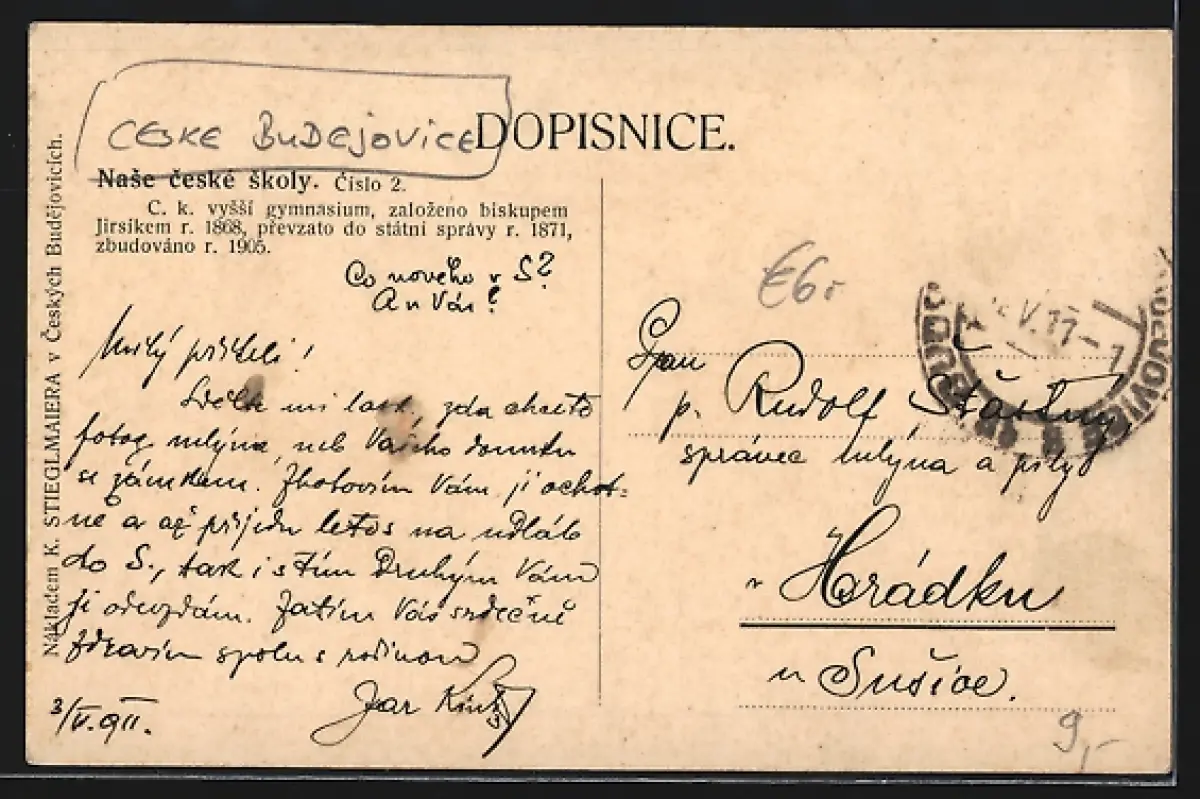 CESKE BUDEJOVICE
DOPISNICE.
Naše české školy. Číslo 2.
C. k. vyšší gymnasium, založeno biskupem
Jirsíkem r. 1868, převzato do státní správy r. 1871,
zbudováno r. 1905.
Nákladem K. STIEGLMAIERA v Českých Budějovicích.
Co nového v S?
A u Vás?
Milý příteli!
mi lask. zda chcete
fotog. mlýna, neb Vašeho domku
se zámkem. Zhotovím Vám ji ochot=
ně a až přijedu letos na
do S., tak i s tím Druhým Vám
ji odevzdám. Zatím Vás srdečně
zdravím spolu s rodinou
Jar
3/V. 911.
€6,-
V. 11-
Pan
p. Rudolf Šťastný,
správce mlýna a pily
v Hrádku
u Sušice.
9,-